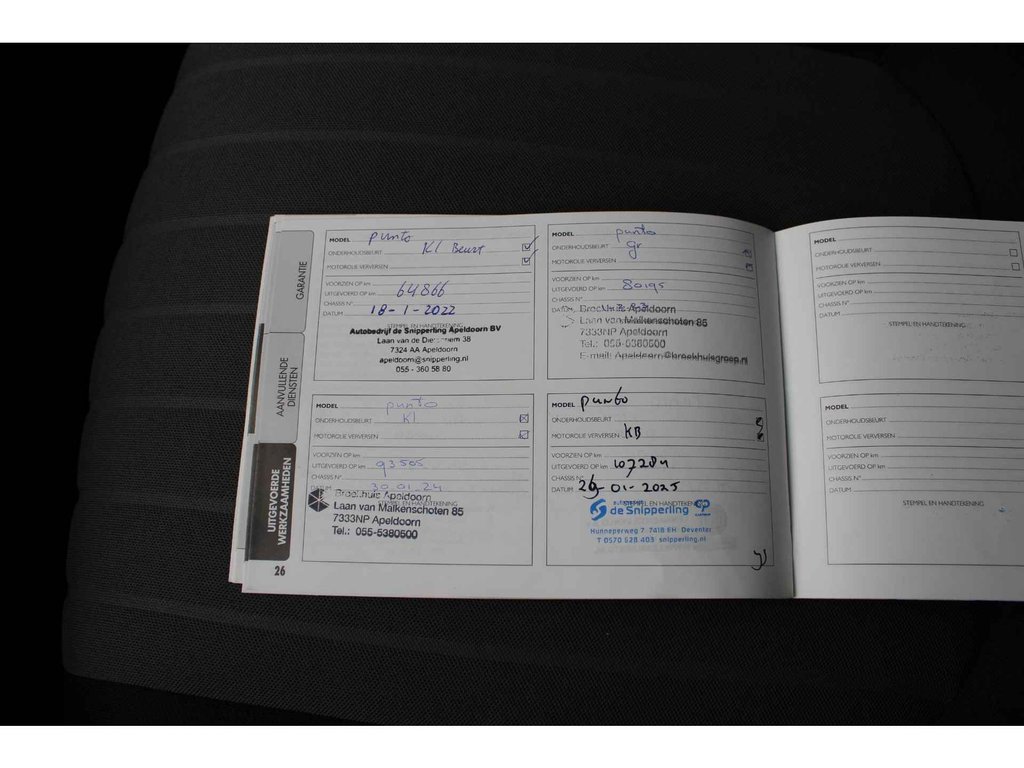 GARANTIE
AANVULLENDE
DIENSTEN
UITGEVOERDE
WERKZAAMHEDEN
26
MODEL punto
ONDERHOUDSBEURT Kl Beurt
MOTOROLIE VERVERSEN
VOORZIEN OP km
UITGEVOERD OP km 64866
CHASSIS N°
DATUM 18-1-2022
STEMPEL EN HANDTEKENING
Autobedrijf de Snipperling Apeldoorn BV
Laan van de 38
7324 AA Apeldoorn
apeldoorn@snipperling.nl
055 - 360 58 80
MODEL punto
ONDERHOUDSBEURT gr
MOTOROLIE VERVERSEN
VOORZIEN OP km
UITGEVOERD OP km 80195
CHASSIS N°
DATUM
Broekhuis Apeldoorn
Laan van Malkenschoten 85
7333NP Apeldoorn
Tel.: 055-5380500
E-mail: Apeldoorn@broekhuisgroep.nl
MODEL punto
ONDERHOUDSBEURT Kl
MOTOROLIE VERVERSEN
VOORZIEN OP km
UITGEVOERD OP km 93505
CHASSIS N°
DATUM 30-01-24
STEMPEL EN HANDTEKENING
Broekhuis Apeldoorn
Laan van Malkenschoten 85
7333NP Apeldoorn
Tel.: 055-5380500
MODEL punto
ONDERHOUDSBEURT
MOTOROLIE VERVERSEN KB
VOORZIEN OP km
UITGEVOERD OP km 107284
CHASSIS N°
DATUM 26-01-2025
STEMPEL EN HANDTEKENING
de Snipperling
Hunneperweg 7 7418 EH Deventer
T 0570 628 403 snipperling.nl
MODEL
ONDERHOUDSBEURT
MOTOROLIE VERVERSEN
VOORZIEN OP km
UITGEVOERD OP km
CHASSIS N°
DATUM
STEMPEL EN HANDTEKENING
MODEL
ONDERHOUDSBEURT
MOTOROLIE VERVERSEN
VOORZIEN OP km
UITGEVOERD OP km
CHASSIS N°
DATUM
STEMPEL EN HANDTEKENING